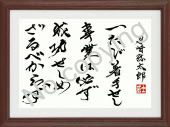 岩崎弥太郎
一たび着手せし
事業は必ず
成功せしめ
ざるべからず
No copying